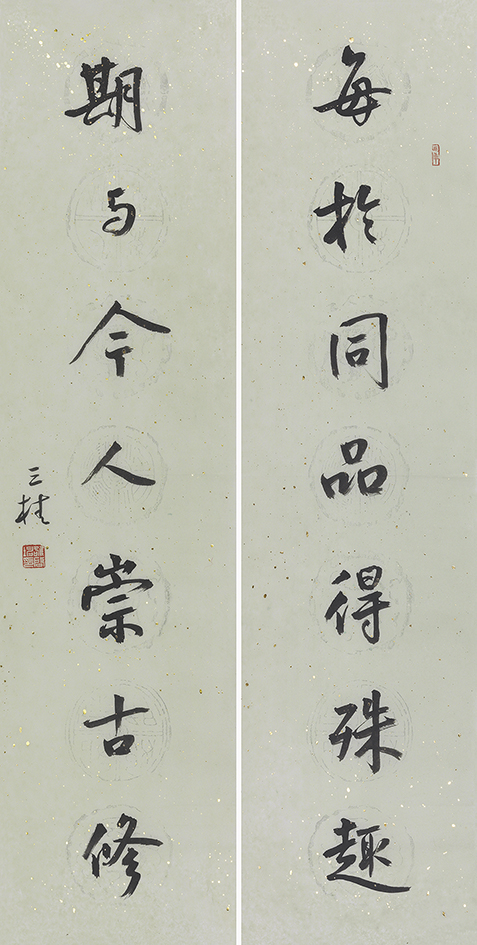 每於同品得殊趣
期与今人崇古修
三桂